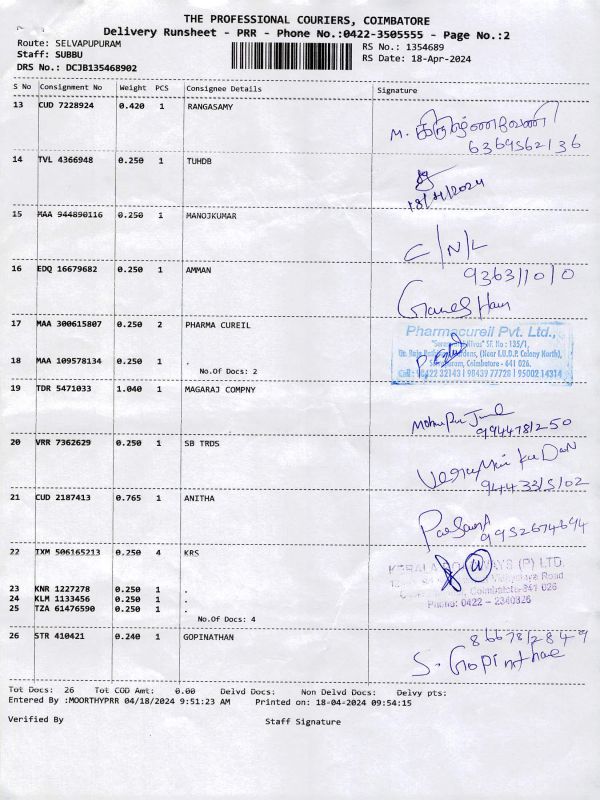 THE PROFESSIONAL COURIERS, COIMBATORE
Delivery Runsheet - PRR - Phone No.:0422-3505555 - Page No.:2
Route: SELVAPUPURAM RS No.: 1354689
Staff: SUBBU RS Date: 18-Apr-2024
DRS No.: DCJB135468902
S No Consignment No Weight PCS Consignee Details Signature
13 CUD 7228924 0.420 1 RANGASAMY
M.
6369562136
14 TVL 4366948 0.250 1 TUHDB
18/4/2024
15 MAA 944890116 0.250 1 MANOJKUMAR
C/N/L
16 EDQ 16679682 0.250 1 AMMAN 936311010
17 MAA 300615807 0.250 2 PHARMA CUREIL
Pharmacureil Pvt. Ltd.,
SF. No : 135/1,
(Near I.U.D.P. Colony North),
Coimbatore - 641 026.
Cell : 98422 32143 | 98439 77728 | 95002 14314
18 MAA 109578134 0.250 1
No.Of Docs: 2
19 TDR 5471033 1.040 1 MAGARAJ COMPNY
9944781250
20 VRR 7362629 0.250 1 SB TRDS
9443315102
21 CUD 2187413 0.765 1 ANITHA
9952674694
22 IXM 506165213 0.250 4 KRS
KERALA ROADWAYS (P) LTD.
Road
Coimbatore-641 026
Phone: 0422 - 2340826
23 KNR 1227278 0.250 1 .
24 KLM 1133456 0.250 1 .
25 TZA 61476590 0.250 1 .
No.Of Docs: 4
26 STR 410421 0.240 1 GOPINATHAN
8667812849
S. Gopinthae
Tot Docs: 26 Tot COD Amt: 0.00 Delvd Docs: Non Delvd Docs: Delvy pts:
Entered By :MOORTHYPRR 04/18/2024 9:51:23 AM Printed on: 18-04-2024 09:54:15
Verified By Staff Signature